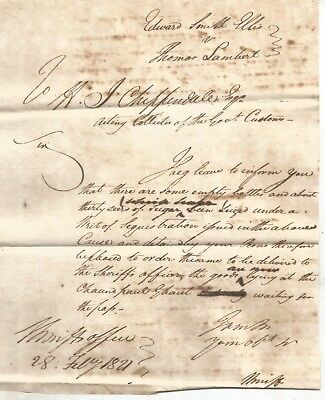 Edward Smith Ellis
v
Thomas Lambert
To
H. J. Chippendale Esqr.
Acting Collector of the Govt. Customs
Sir
I beg leave to inform you
that there are some empty bottles and about
thirty seers of Sugar been Seized under a
Writ of Sequestration issued in the above
Cause and
be pleased to order the same to be delivered to
the Sheriffs officer the goods are now lying at the
Chaundpaul Ghaut waiting for
the pass
I am Sir
Your Obt. Sr
Sheriffs office
28 Feby. 1821
Sheriff